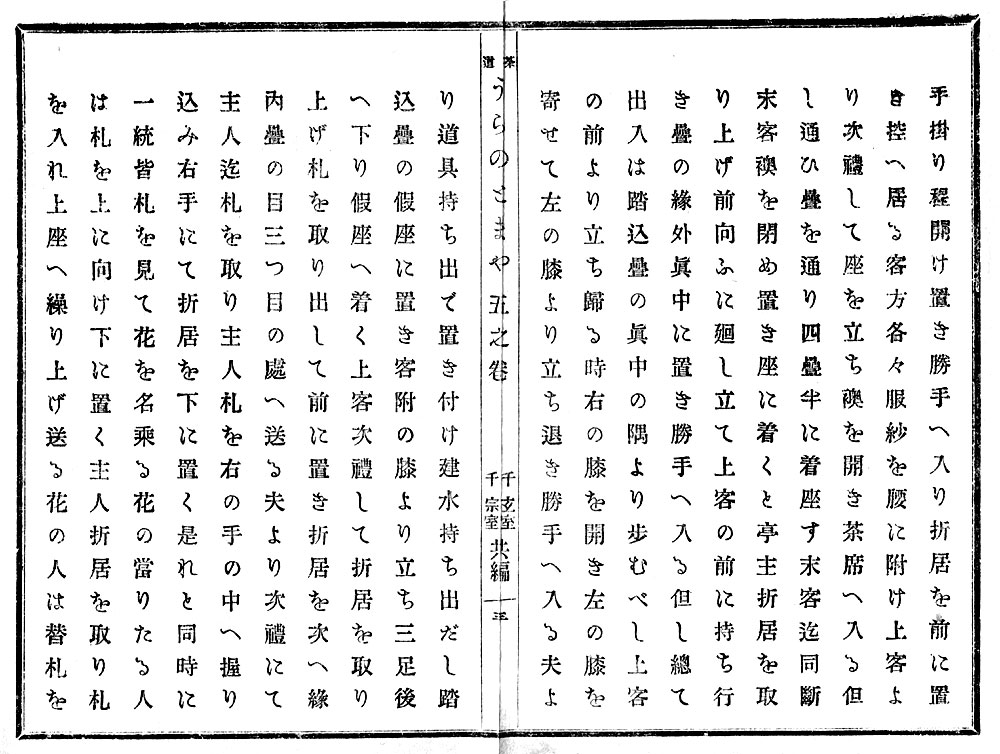 手掛り程開け置き勝手へ入り折居を前に置
き控へ居る客方各々服紗を腰に附け上客よ
り次禮して座を立ち襖を開き茶席へ入る但
し通ひ疊を通り四疊半に着座す末客迄同斷
末客襖を閉め置き座に着くと亭主折居を取
り上げ前向ふに廻し立て上客の前に持ち行
き疊の緣外眞中に置き勝手へ入る但し總て
出入は踏込疊の眞中の隅より步むべし上客
の前より立ち歸る時右の膝を開き左の膝を
寄せて左の膝より立ち退き勝手へ入る夫よ
茶道
うらのとまや 五之卷
千玄室
千宗室
共編
り道具持ち出で置き付け建水持ち出だし踏
込疊の假座に置き客附の膝より立ち三足後
へ下り假座へ着く上客次禮して折居を取り
上げ札を取り出して前に置き折居を次へ緣
內疊の目三つ目の處へ送る夫より次禮にて
主人迄札を取り主人札を右の手の中へ握り
込み右手にて折居を下に置く是れと同時に
一統皆札を見て花を名乘る花の當りたる人
は札を上に向け下に置く主人折居を取り札
を入れ上座へ繰り上げ送る花の人は替札を